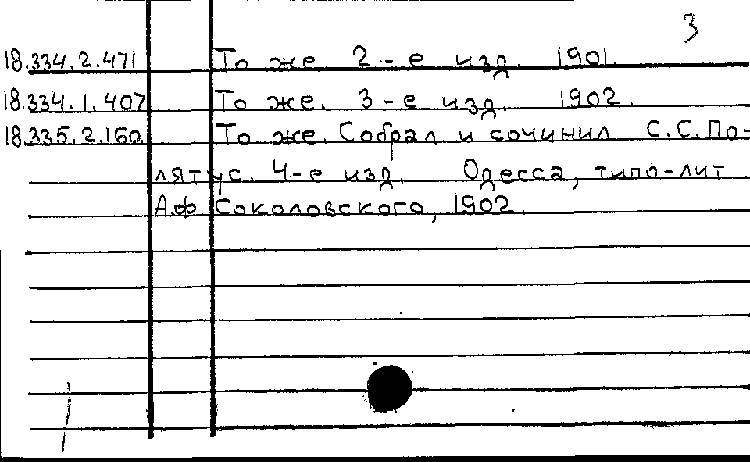 3
18.334.2.471 То же 2-е изд. 1901
18.334.1.407 То же. 3-е изд. 1902.
18.335.2.160 То же. Собрал и сочинил С.С.По-
лятус. 4-е изд. Одесса, типо-лит
А.Ф Соколовского, 1902.